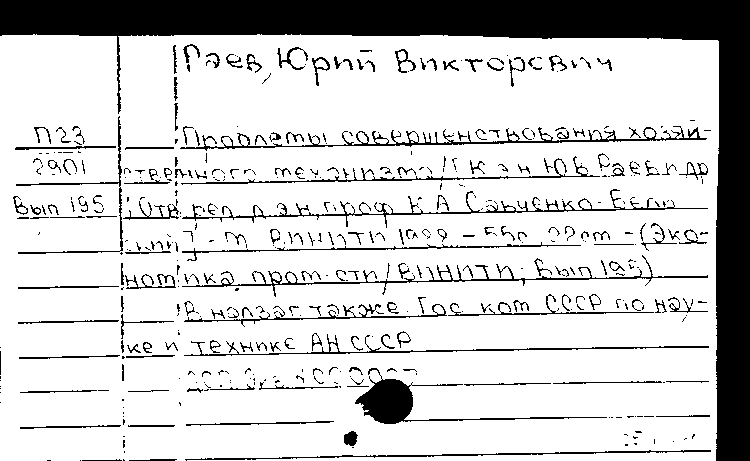 Раев, Юрий Викторович
П23 Проблемы совершенствования хозяй-
2901 ственного механизма/[К э н Ю В Раев и др
Вып 195 ; Отв ред. д э н, проф К А Савченко-Бель
ский] - М ВИНИТИ, - 55с, - (Эко-
номика пром-сти/ВИНИТИ; Вып 195)
В надзаг также Гос ком СССР по нау-
ке и технике АН СССР